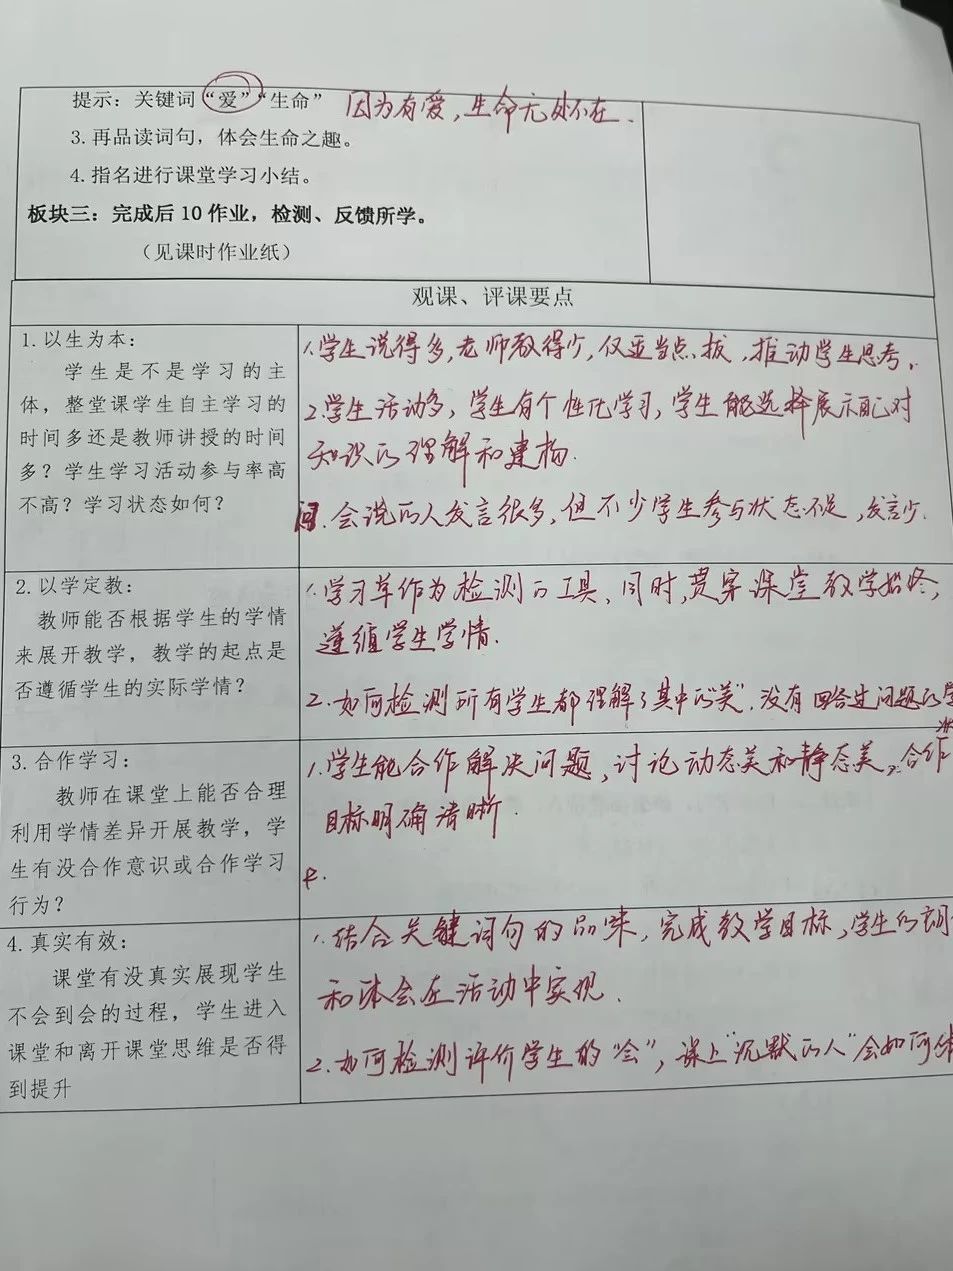 提示：关键词“爱”“生命” 因为有爱，生命无处不在．
3.再品读词句，体会生命之趣。
4.指名进行课堂学习小结。
板块三：完成后10作业，检测、反馈所学。
（见课时作业纸）
观课、评课要点
1.以生为本：
学生是不是学习的主
体，整堂课学生自主学习的
时间多还是教师讲授的时间
多？学生学习活动参与率高
不高？学习状态如何？
1.学生说得多,老师教得少,仅适当点拔,推动学生思考.
2.学生活动多，学生有个性化学习，学生能选择展示自己对
知识的理解和建构.
问.会说的人发言很多，但不少学生参与状态不足，发言少.
2.以学定教：
教师能否根据学生的学情
来展开教学，教学的起点是
否遵循学生的实际学情？
1.学习单作为检测的工具、同时，贯穿课堂教学始终，
遵循学生学情.
2.如何检测所有学生都理解了其中的“美”.没有回答过问题的学
3.合作学习：
教师在课堂上能否合理
利用学情差异开展教学，学
生有没合作意识或合作学习
行为？
1.学生能合作解决问题，讨论动态美和静态美，合作
目标明确清晰.
4.真实有效：
课堂有没真实展现学生
不会到会的过程，学生进入
课堂和离开课堂思维是否得
到提升
1.结合关键词句的品味，完成教学目标，学生的朗
和体会在活动中实现.
2.如何检测评价学生的“会”，课上“沉默的人”会如何